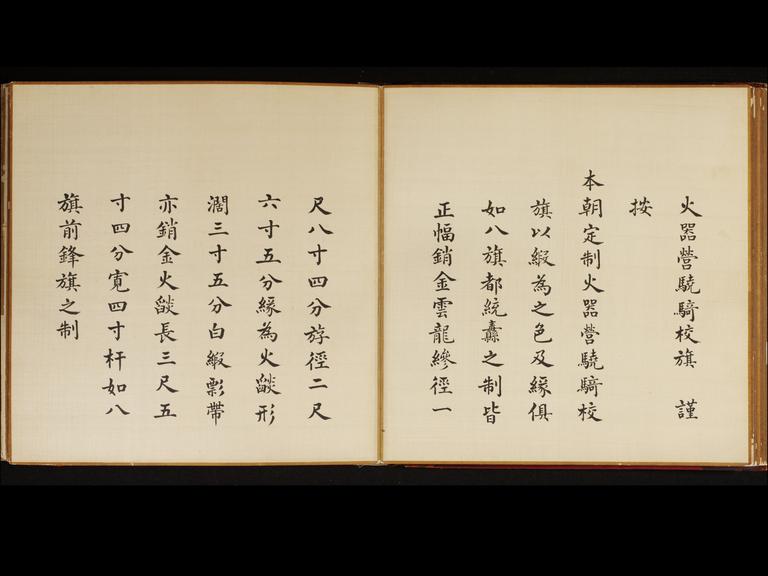 火器營驍騎校旗 謹
按
本朝定制火器營驍騎校
旗以緞為之色及緣俱
如八旗都統纛之制皆
正幅銷金雲龍縿徑一
尺八寸四分斿徑二尺
六寸五分緣為火燄形
濶三寸五分白緞彯帶
亦銷金火燄長三尺五
寸四分寬四寸杆如八
旗前鋒旗之制